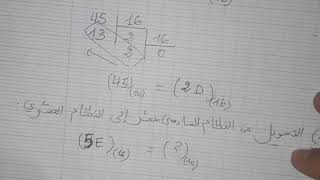 45 | 16
13 | 2 | 16
2 | 0
(45)(10) = (2D)(16)
التحويل من النظام السادس عشر إلى النظام العشري:
(5E)(16) = (?)(10)